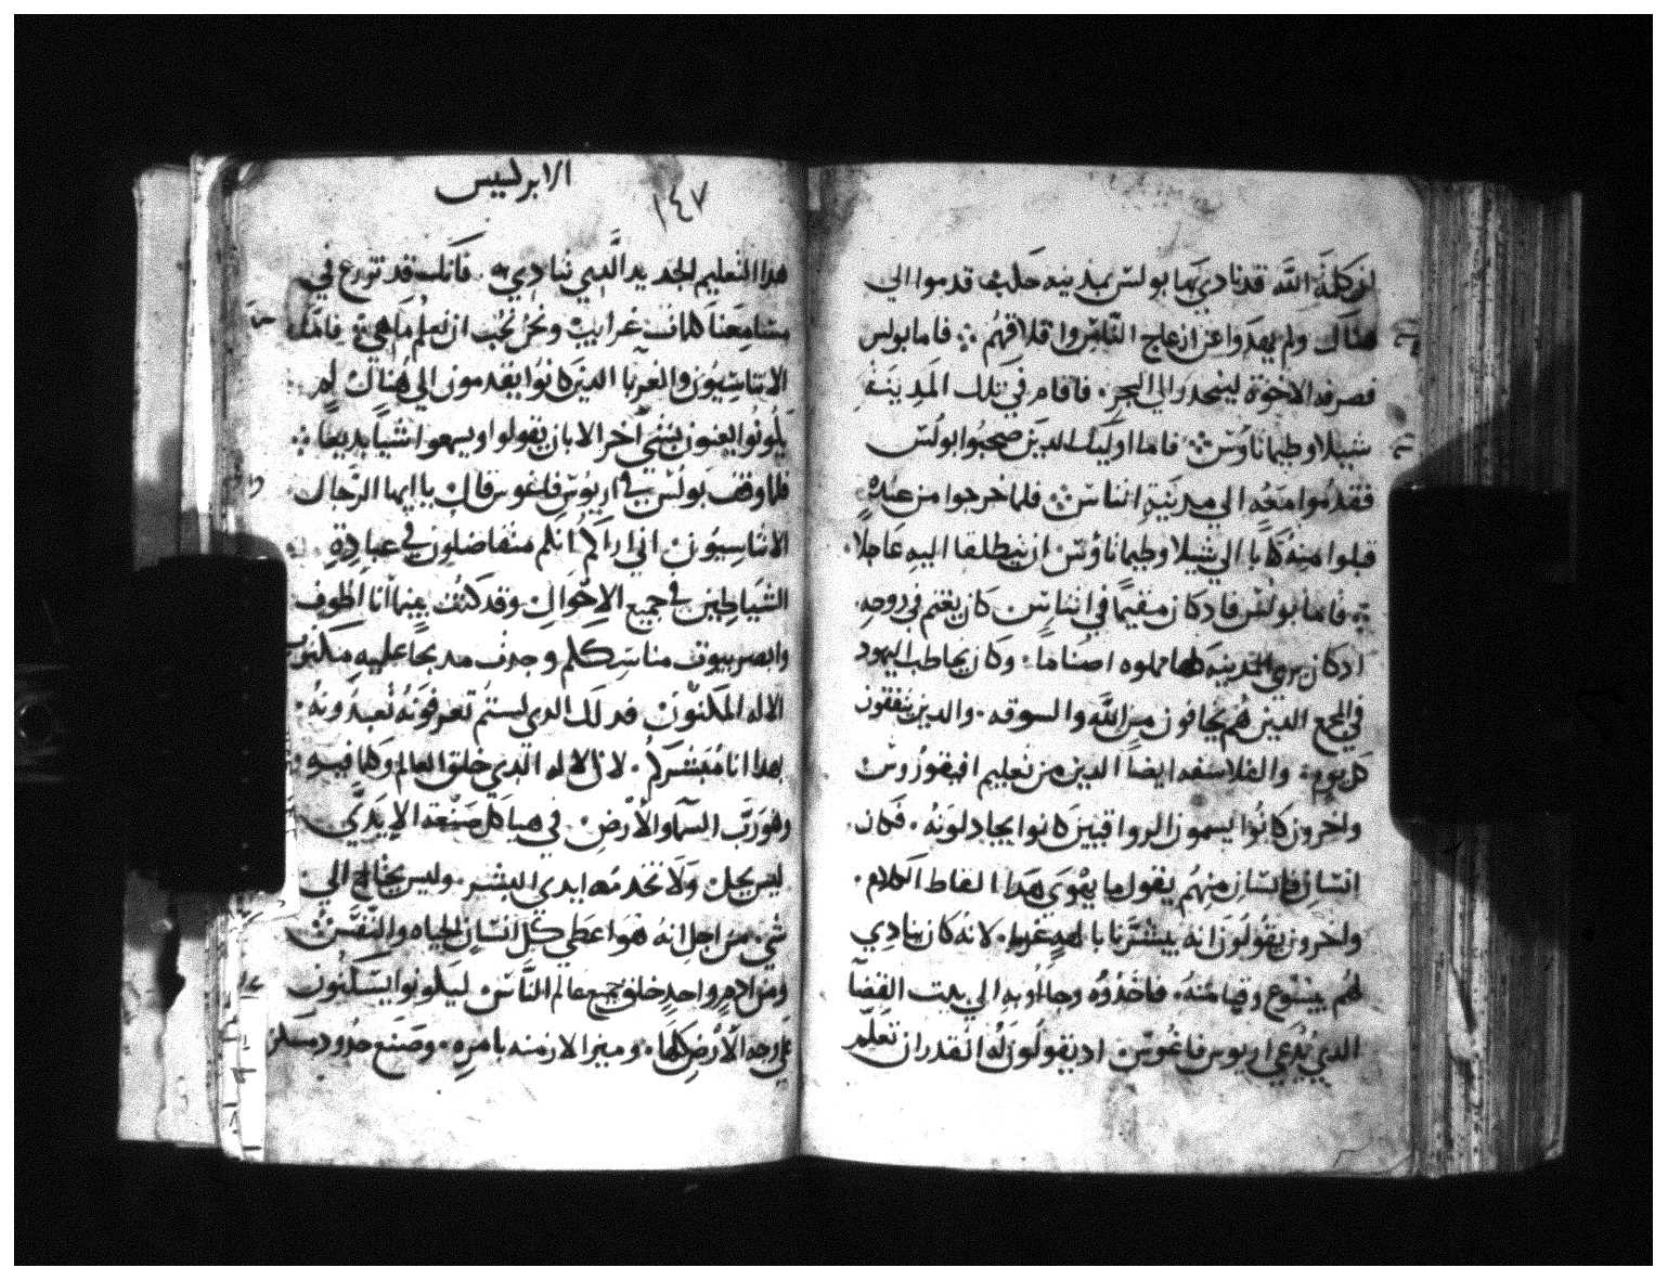 ان كلمة الله قد نادي بها بولس بمدينه حلب قدموا الي
هناك ولم يهدوا عن ازعاج الناس واقلاقهم ፨ فاما بولس
فصرفه الاخوة لينحدر الي البحر. فاقام في تلك المدينة
شيلا وطيماثاوس ፨ فاما اوليك الدين صحبوا بولس
فقدموا معه الي مدينة اثناس ፨ فلما خرجوا من عنده
قبلوا منه كتابا الي شيلا وطيماثاوس ان ينطلقا اليه عاجلا.
فاما بولس فاد كان مقيما في اثناس كان يغتم في روحه.
اد كان يري المدينه كلها مملوه اصناما. وكان يخاطب اليهود
في المجمع الدين هم يخافون من الله والسوقه. والدين يتفقون
كل يوم. والفلاسفه ايضا الدين من تعليم افيقوروس
واخرون كانوا يسمون الرواقيين كانوا يجادلونه. فكان
انسان فانسان منهم يقول ما يهوي هدا القاط الكلام.
واخرون يقولون انه يبشرنا بالهه غريبه. لانه كان ينادي
لهم بيسوع وقيامته. فاخدوه وجاءوا به الي بيت القضا
الدي يدعي اريوس فاغوس. اد يقولون له اتقدر ان تعلم
الابركسيس
١٤٧
هدا التعليم الجديد الدي تنادي به. فانك قد تزرع في
مسامعنا كلمات غرايب ونحن نحب ان نعلم ما هي ፨ فاما
الاثناسيون والغربا الدين كانوا يقدمون الي هناك لم
يكونوا يعنون بشي اخر الا بان يقولوا ويسمعوا شيا بديعا ፨
فلما وقف بولس في اريوس فاغوس قال يا ايها الرجال
الاثناسيون اني اراكم انكم متفاضلون في عبادة
الشياطين في جميع الاحوال وقد كنت بينما انا اطوف
وابصر بيوت مناسككم وجدت مدبحا عليه مكتوب
الاله المكنون فدلك الدي لستم تعرفونه تعبدونه.
بهدا انا مبشركم. لان الاله الدي خلق العالم وكلما فيه
وهو رب السما والارض. في هياكل صنعة الايدي
ليس يحل ولا تخدمه ايدي البشر. وليس يحتاج الي
شي. من اجل انه هو اعطي كل انسان الحياه والنفس
ومن ادم واحد خلق جميع عالم الناس ليكونوا يسكنون
علي وجه الارض كلها. وميز الازمنه بامره. وصنع حدود مسكن